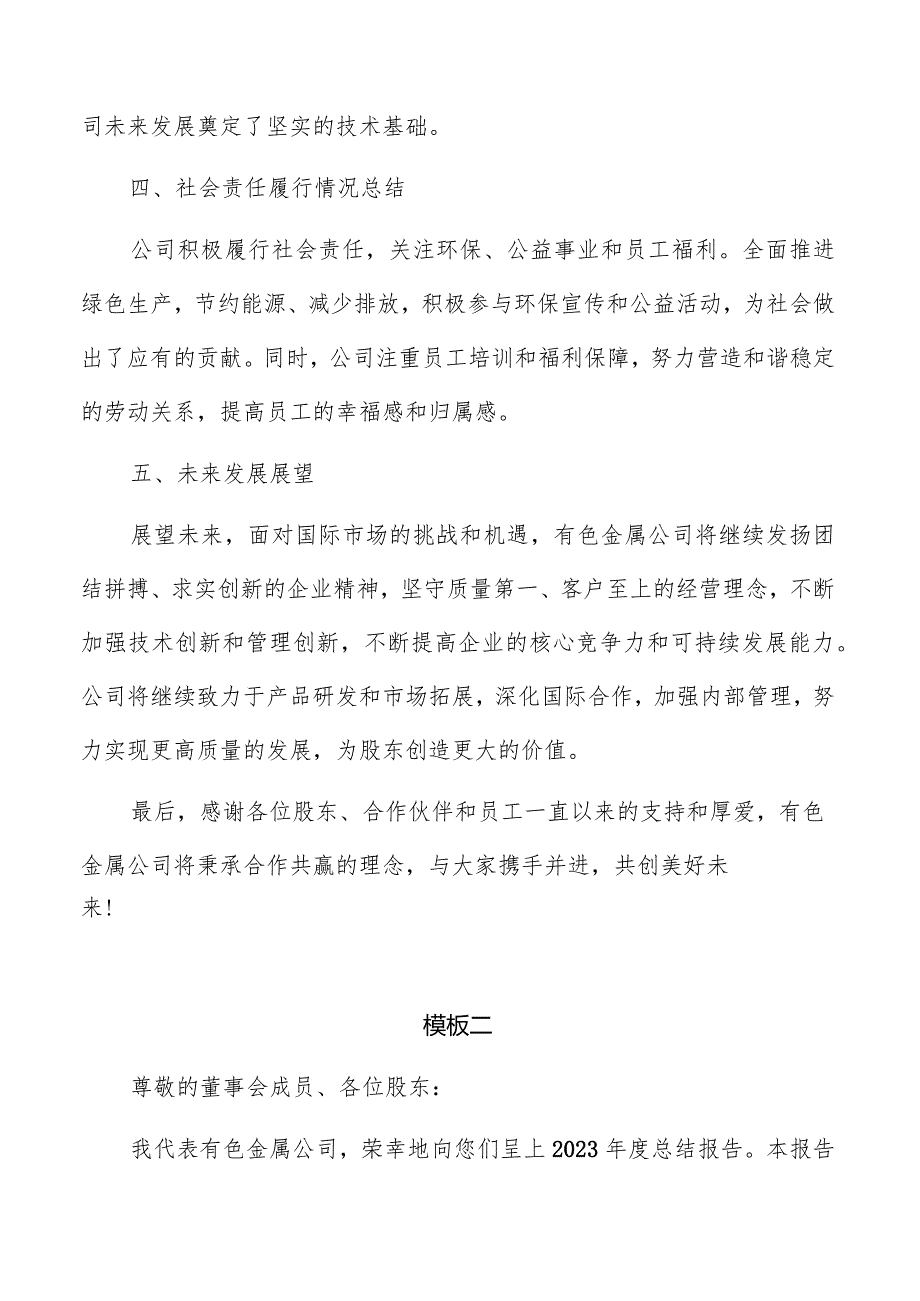 司未来发展奠定了坚实的技术基础。
四、社会责任履行情况总结
公司积极履行社会责任，关注环保、公益事业和员工福利。全面推进
绿色生产，节约能源、减少排放，积极参与环保宣传和公益活动，为社会做
出了应有的贡献。同时，公司注重员工培训和福利保障，努力营造和谐稳定
的劳动关系，提高员工的幸福感和归属感。
五、未来发展展望
展望未来，面对国际市场的挑战和机遇，有色金属公司将继续发扬团
结拼搏、求实创新的企业精神，坚守质量第一、客户至上的经营理念，不断
加强技术创新和管理创新，不断提高企业的核心竞争力和可持续发展能力。
公司将继续致力于产品研发和市场拓展，深化国际合作，加强内部管理，努
力实现更高质量的发展，为股东创造更大的价值。
最后，感谢各位股东、合作伙伴和员工一直以来的支持和厚爱，有色
金属公司将秉承合作共赢的理念，与大家携手并进，共创美好未
来!
模板二
尊敬的董事会成员、各位股东：
我代表有色金属公司，荣幸地向您们呈上 2023 年度总结报告。本报告